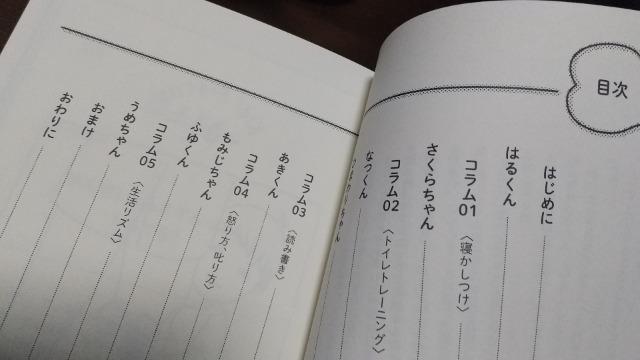 目次
はじめに
はるくん
コラム01〈寝かしつけ〉
さくらちゃん
コラム02〈トイレトレーニング〉
なつくん
ひまわりちゃん
コラム03〈読み書き〉
あきくん
コラム04〈怒り方、叱り方〉
もみじちゃん
ふゆくん
コラム05〈生活リズム〉
うめちゃん
おまけ
おわりに